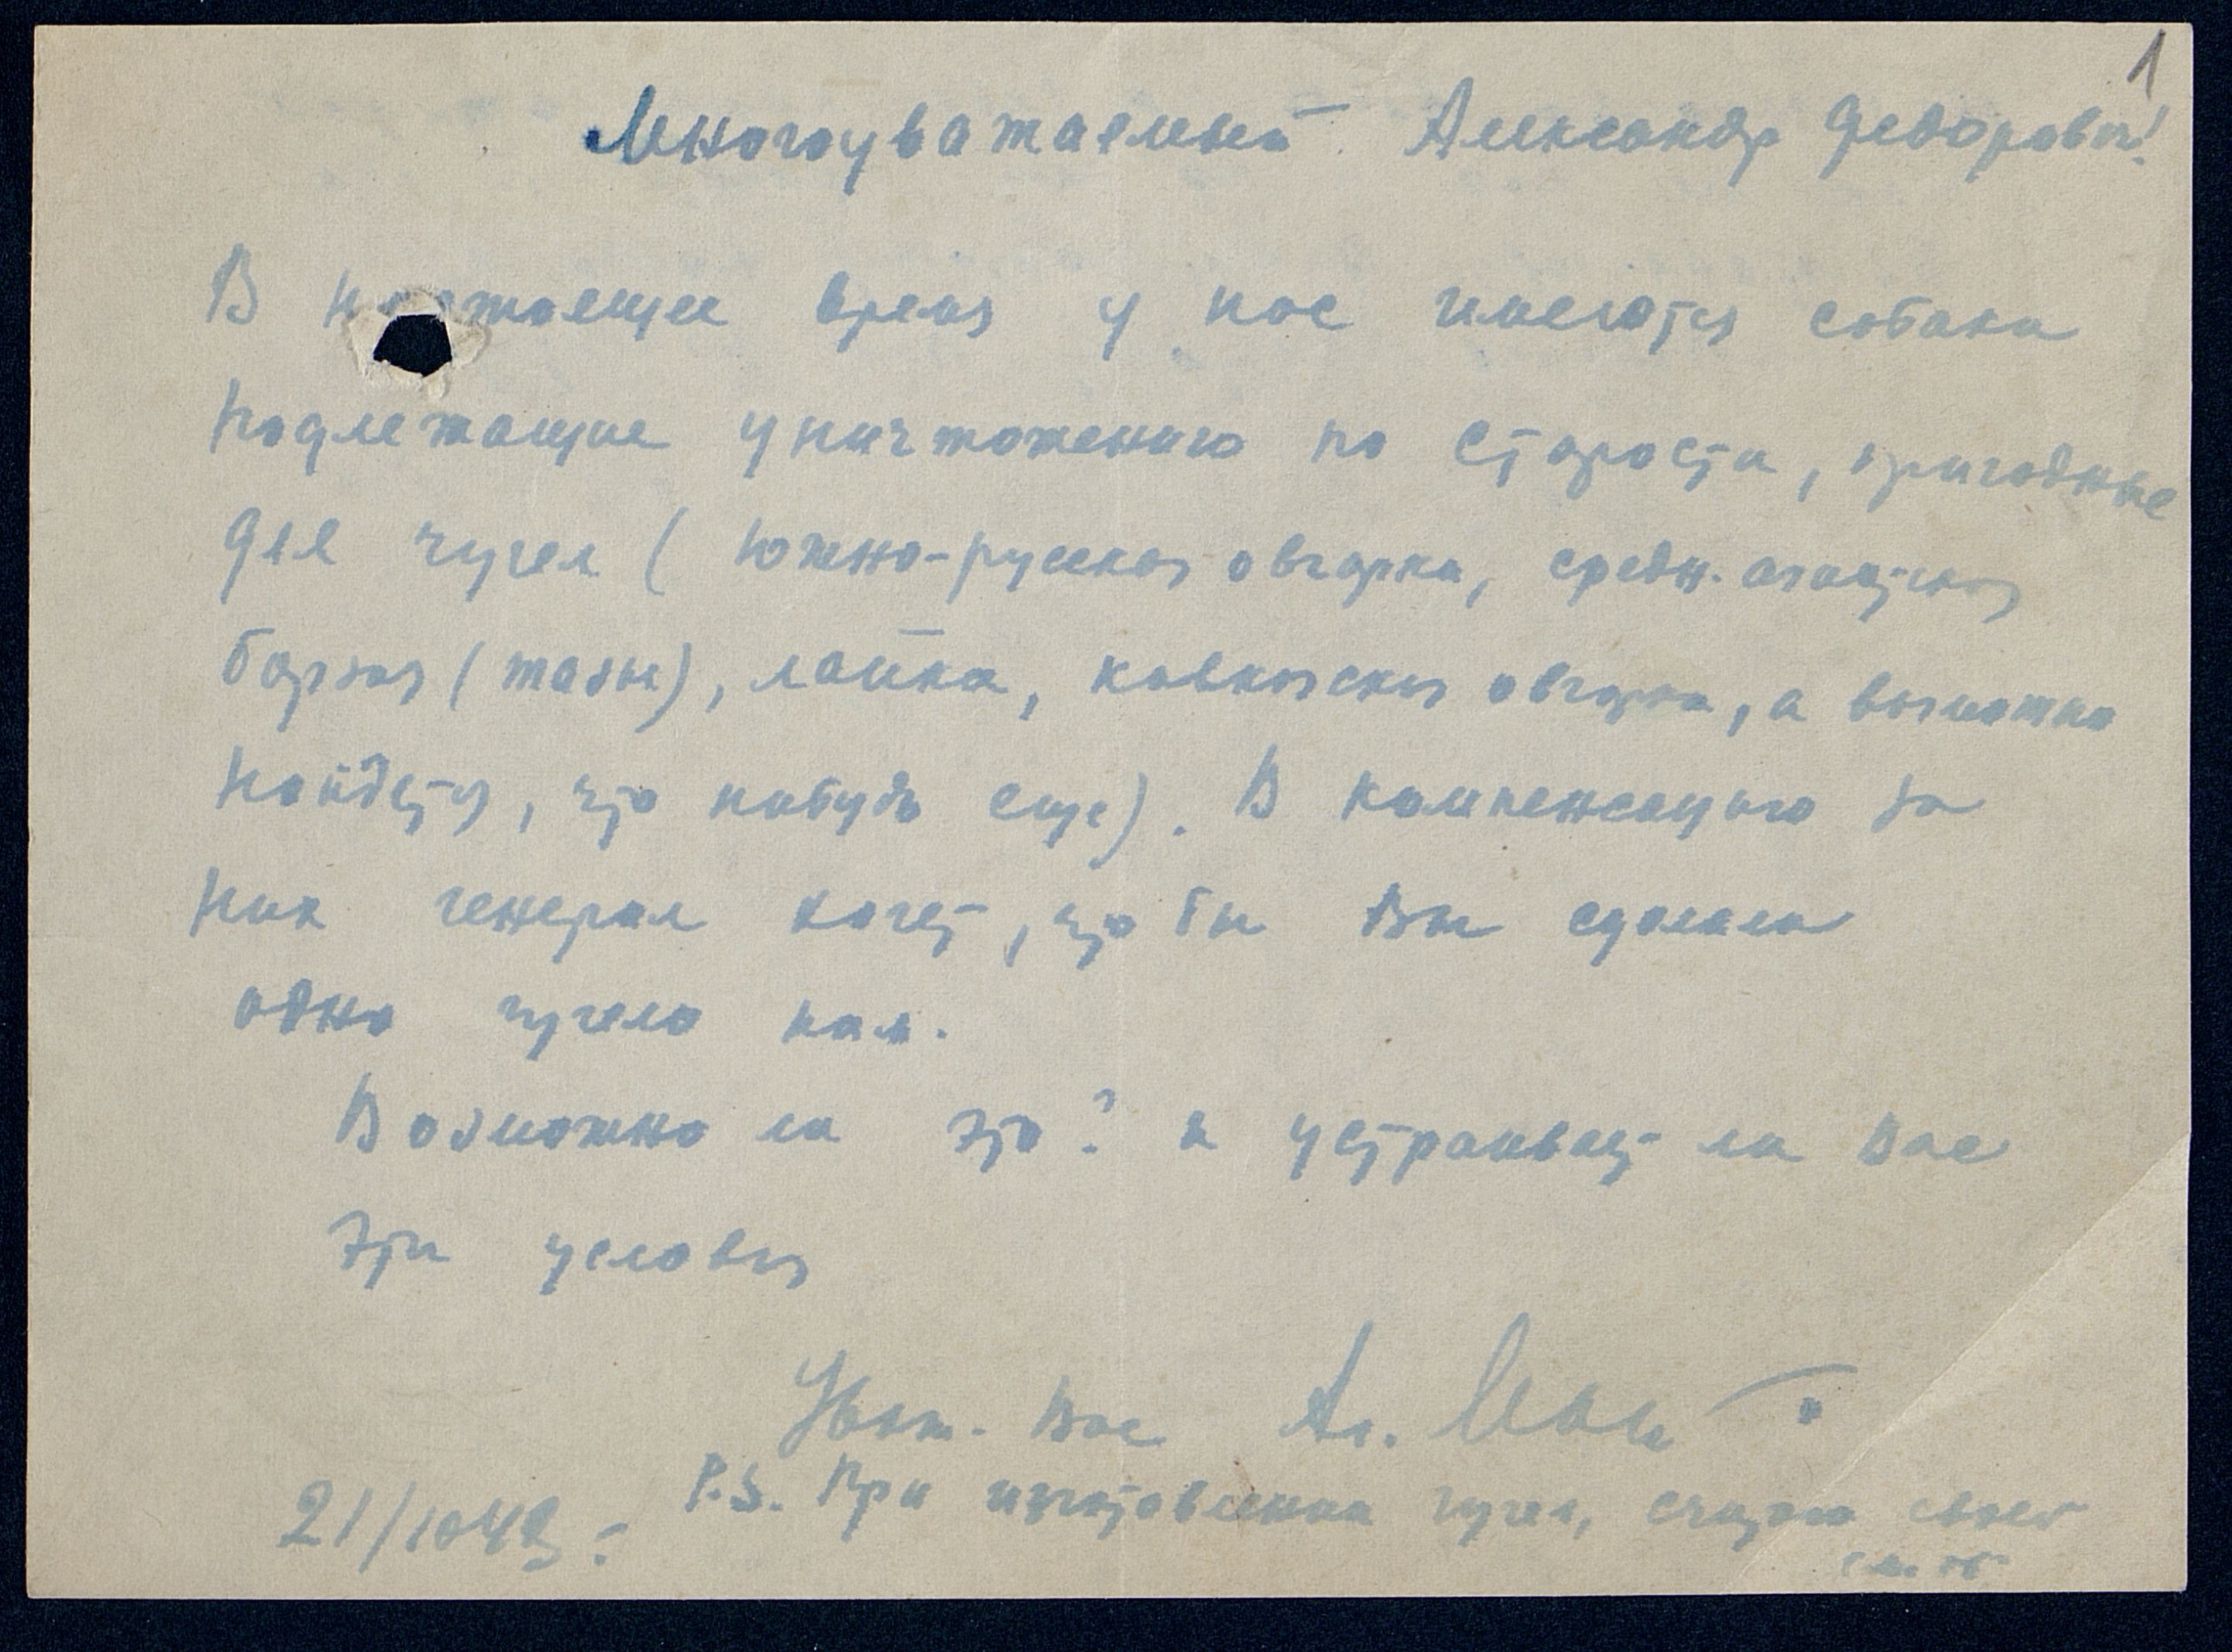 1
Многоуважаемый Александр Федорович!
В настоящее время у нас имеются собаки
подлежащие уничтожению по старости, пригодные
для чучел (Южно-русская овчарка, средн. азиатская
борзая (тазы), лайка, кавказская овчарка, а возможно
найдется, что нибудь еще). В компенсацию за
них генерал хочет, что бы Вы сделали
одно чучело нам.
Возможно ли это? и устраивает ли Вас
эти условия
Уваж. Вас Ал.
P.S. При изготовлении чучел, считаю своей
21/10 43
см. об